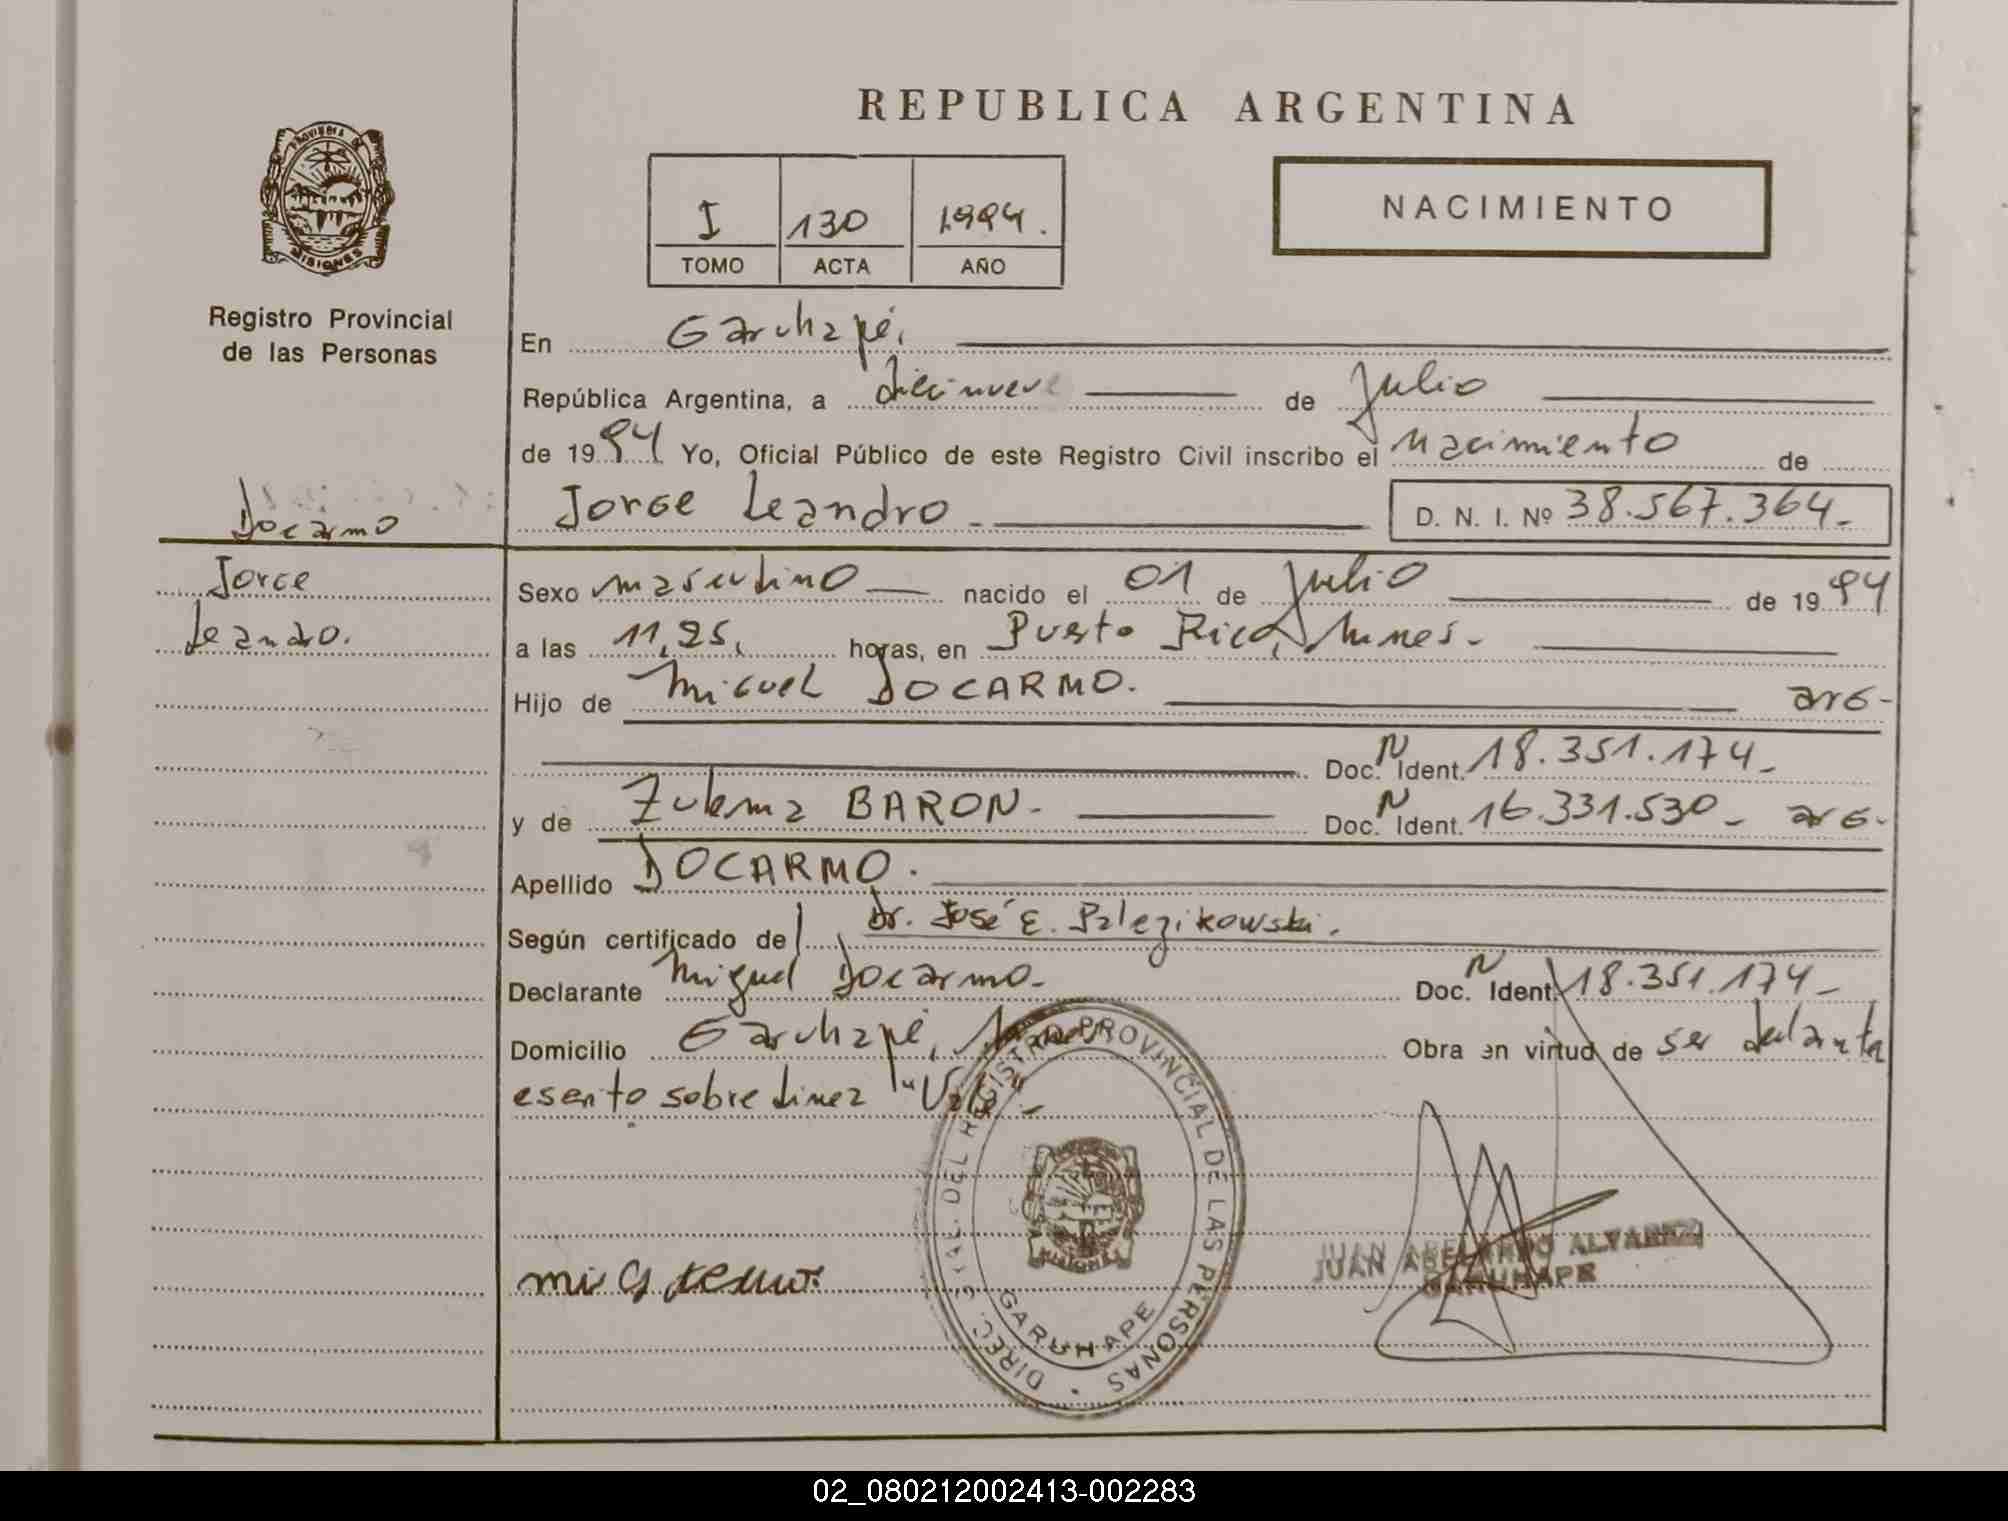 REPUBLICA ARGENTINA
PROVINCIA DE
MISIONES
Registro Provincial
de las Personas
I 130 1994.
TOMO ACTA AÑO
NACIMIENTO
En Garuhapé,
República Argentina, a diecinueve de Julio
de 1994 Yo, Oficial Público de este Registro Civil inscribo el nacimiento de
Jorge Leandro - D. N. I. Nº 38.567.364-
Docarmo
Jorge
Leandro.
Sexo masculino nacido el 01 de Julio de 1994
a las 11,25, horas, en Puerto Rico,
Hijo de Miguel DOCARMO. arg-
Doc. N Ident. 18.351.174-
y de Zulema BARON- Doc. N Ident. 16.331.530- arg-
Apellido DOCARMO.
Según certificado de Dr. José E.
Declarante Miguel Docarmo- Doc. N Ident. 18.351.174-
Domicilio Garuhapé, Obra en virtud de ser declarante
escrito sobre linea "Vale"-
DIREC. GRAL. DEL REGISTRO PROVINCIAL DE LAS PERSONAS
GARUHAPE
MISIONES
JUAN ABELARDO ALVAREZ
GARUHAPE
02_080212002413-002283